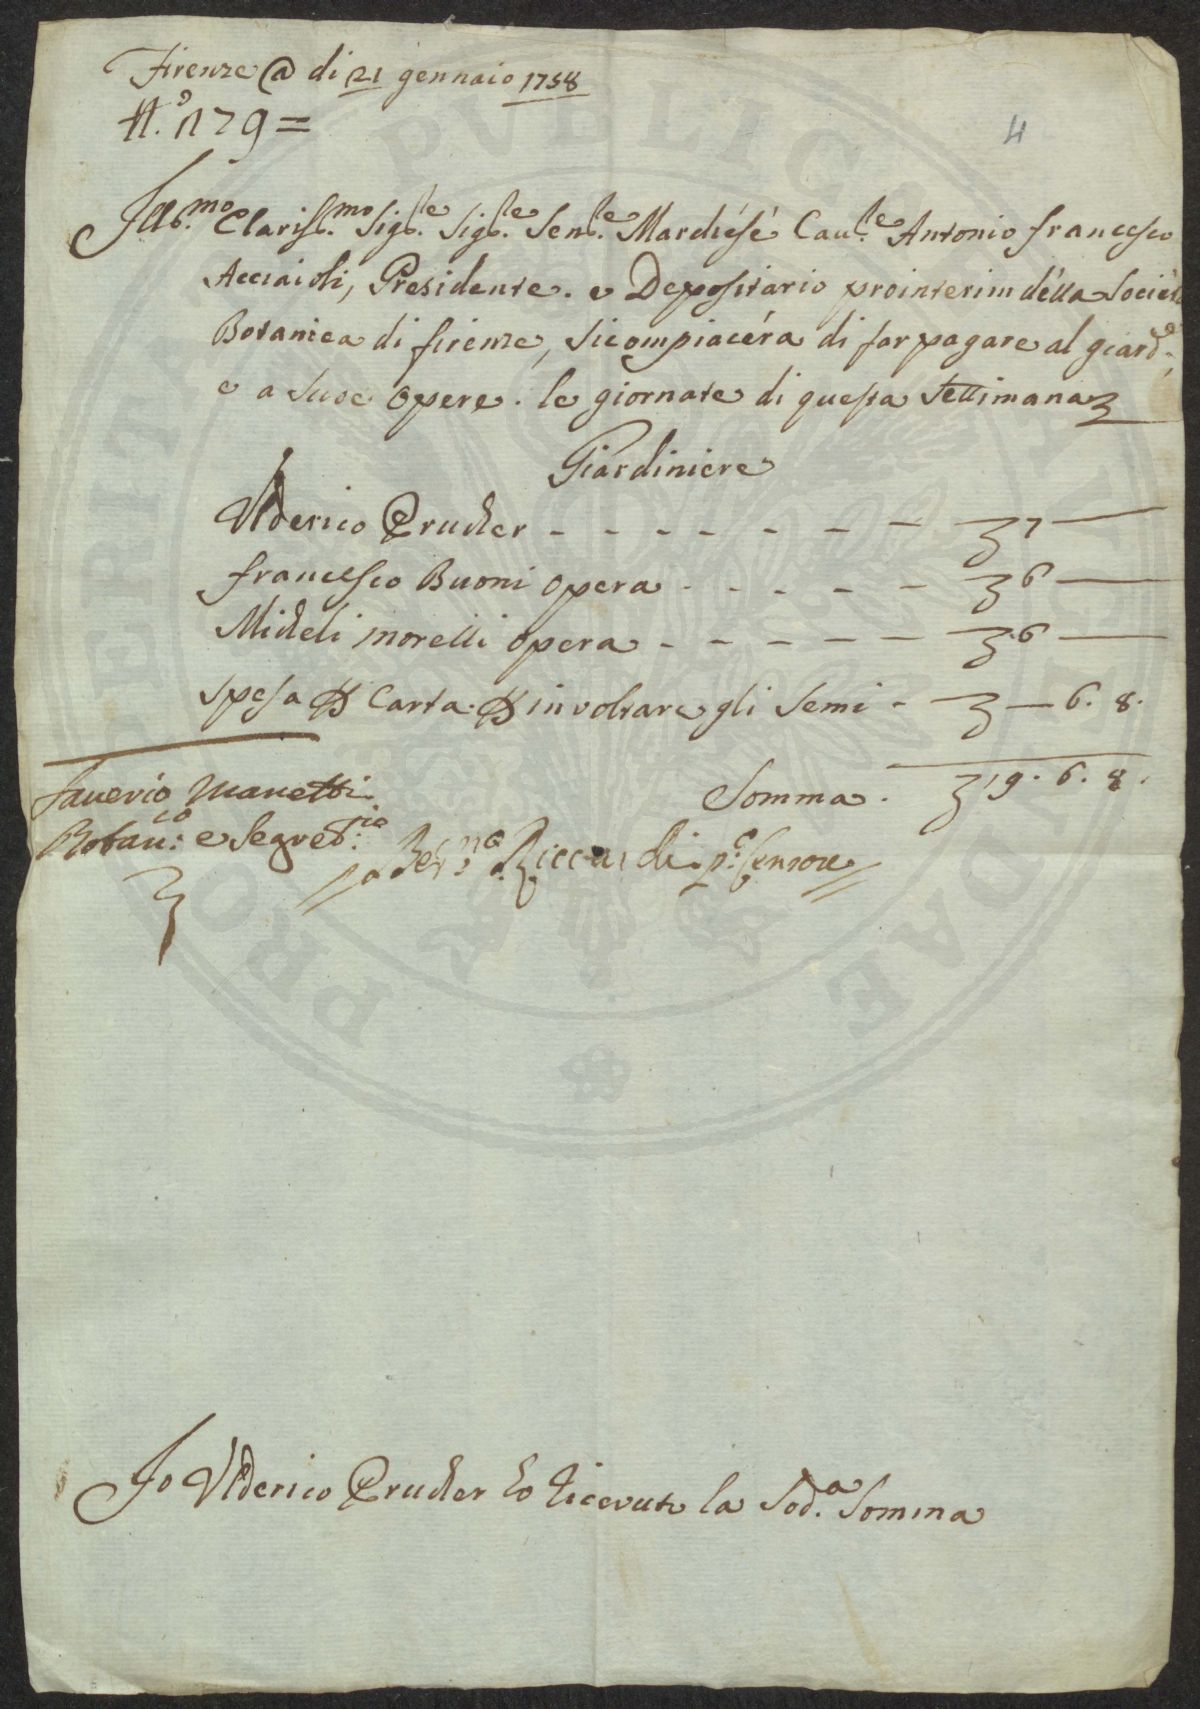 Firenze @ di 21 gennaio 1758
N.º 179 =
4
Ill.mo Clariss.mo Sig.re Sig.re Sen.re Marchésé Cau.re Antonio francesco
Acciaioli, Presidente. e Depositario prointerim délla Societá
Botanica di firenze, si compiacéra di far pagare al giard.e
e a sue opere. le giornate di questa settimana
Giardiniere
Ulderico Pruckler - - - - - - - 7 —
francesco Buoni opera - - - - - 6 —
Micheli morelli opera - - - - - 6 —
spesa p Carta. p involtare gli semi - — 6. 8.
Somma. 19. 6. 8.
Saverio Manetti
Botan.co e Segret.rio
Bern.o Riccardi p.e Censore
PRO PVBLICAE VTILITATE
Io Ulderico Pruckler ho ricevuto la Sod.a Somma